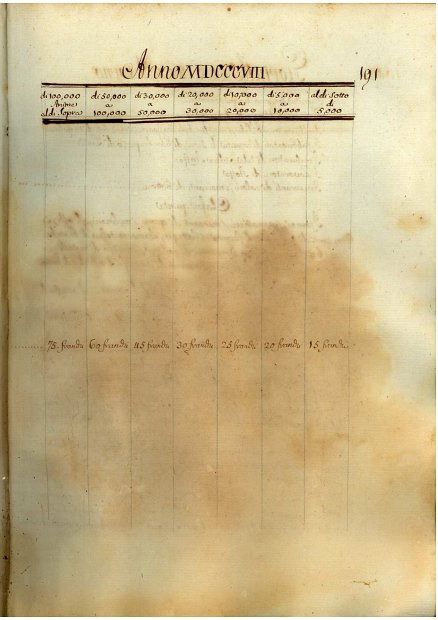 Anno MDCCCVIII 191
di 100,000 Anime al di Sopra
di 50,000 a 100,000
di 30,000 a 50,000
di 20,000 a 30,000
di 10,000 a 20,000
di 5,000 a 10,000
al di Sotto di 5,000
75 franchi 60 franchi 45 franchi 30 franchi 25 franchi 20 franchi 15 franchi